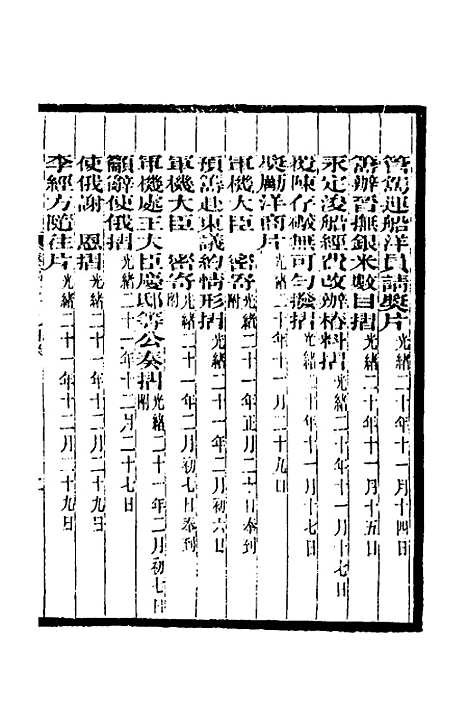 管駕運船洋員請獎片光緒二十年十一月十四日
籌辦晉撫銀米數目摺光緒二十年十一月十五日
永定淩船經費改辦樁料摺光緒二十年十一月十七日
覆陳存礮無可勻撥摺光緒二十年十一月十七日
獎勵洋商片光緒二十年十一月二十九日
軍機大臣 密寄附光緒二十一年正月二十日奉到
預籌赴東議約情形摺光緒二十一年二月初六日
軍機大臣 密寄附光緒二十一年二月初七日奉到
軍機處王大臣慶邸等公奏摺附光緒二十一年二月初七日
籲辭使俄摺光緒二十一年十二月二十七日
使俄謝 恩摺光緒二十一年十二月二十九日
李經方隨往片光緒二十一年十二月二十九日